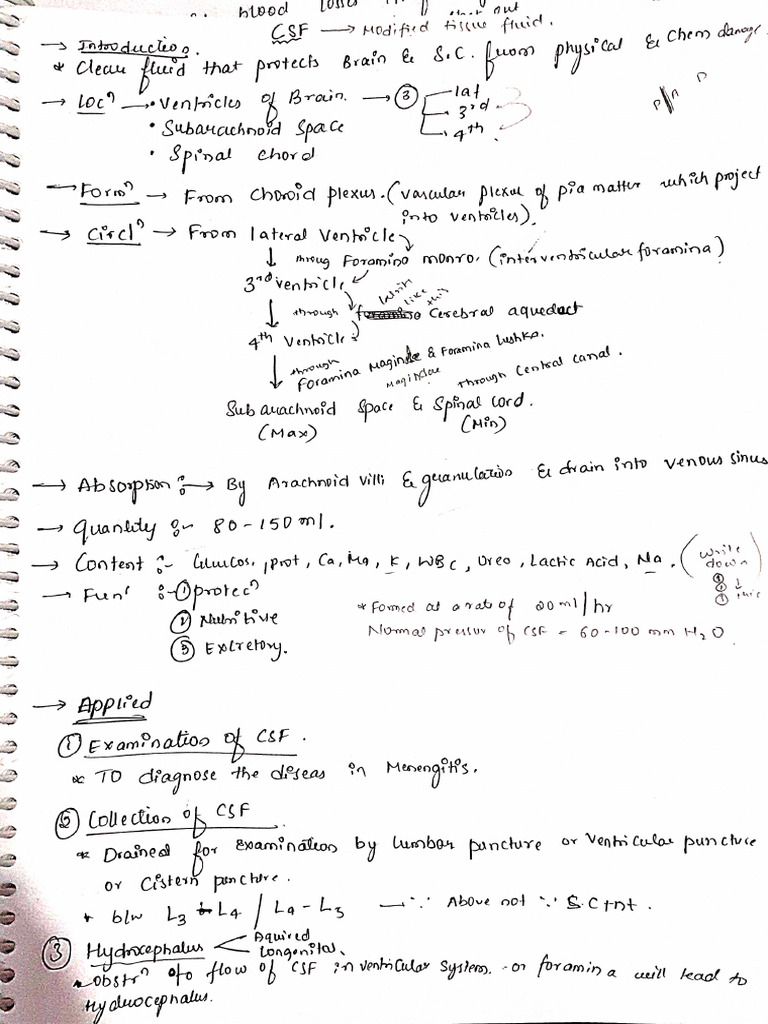 blood
CSF → Modified tissue fluid.
→ Introduction.
* Clear fluid that protects Brain & S.C. from physical & Chem damage
→ Locⁿ → • Ventricles of Brain → ③ lat
3rd
4th
• Subarachnoid Space
• Spinal chord
→ Formⁿ → From Choroid plexus. (vascular plexus of pia matter which project
into ventricles).
→ Circlⁿ → From lateral Ventricle
↓ throug Foramino monro. (interventricular foramina)
3rd ventricle
↓ through Cerebral aqueduct
Write like this
4th Ventricle
↓ through Foramina Magindle & Foramina Lushka.
Magindae through Central canal.
Subarachnoid Space & Spinal cord.
(Max) (Min)
→ Absorption :→ By Arachnoid villi & granulation & drain into venous sinus
→ Quantity :- 80-150ml.
→ Content :- Glucos, prot, Ca, Mg, K, WBC, Ureo, Lactic Acid, Na. (write down ↓ this
→ Funⁿ :- ① protecⁿ
② Nutritive
③ Excretory.
* Formed at a rate of 20ml/hr
Normal pressur of CSF = 60-100 mm H₂O
→ Applied
① Examination of CSF.
* TO diagnose the diseas in Menengitis.
② Collection of CSF
* Drained for examination by lumbar puncture or Ventricular puncture
or Cistern puncture.
* b/w L3 L4 / L4 - L5 → ∵ Above not ∵ S.C
③ Hydrocephalus Aquired
Congenital
* Obstrⁿ to flow of CSF in ventricular system. or foramina will lead to
Hydrocephalus.